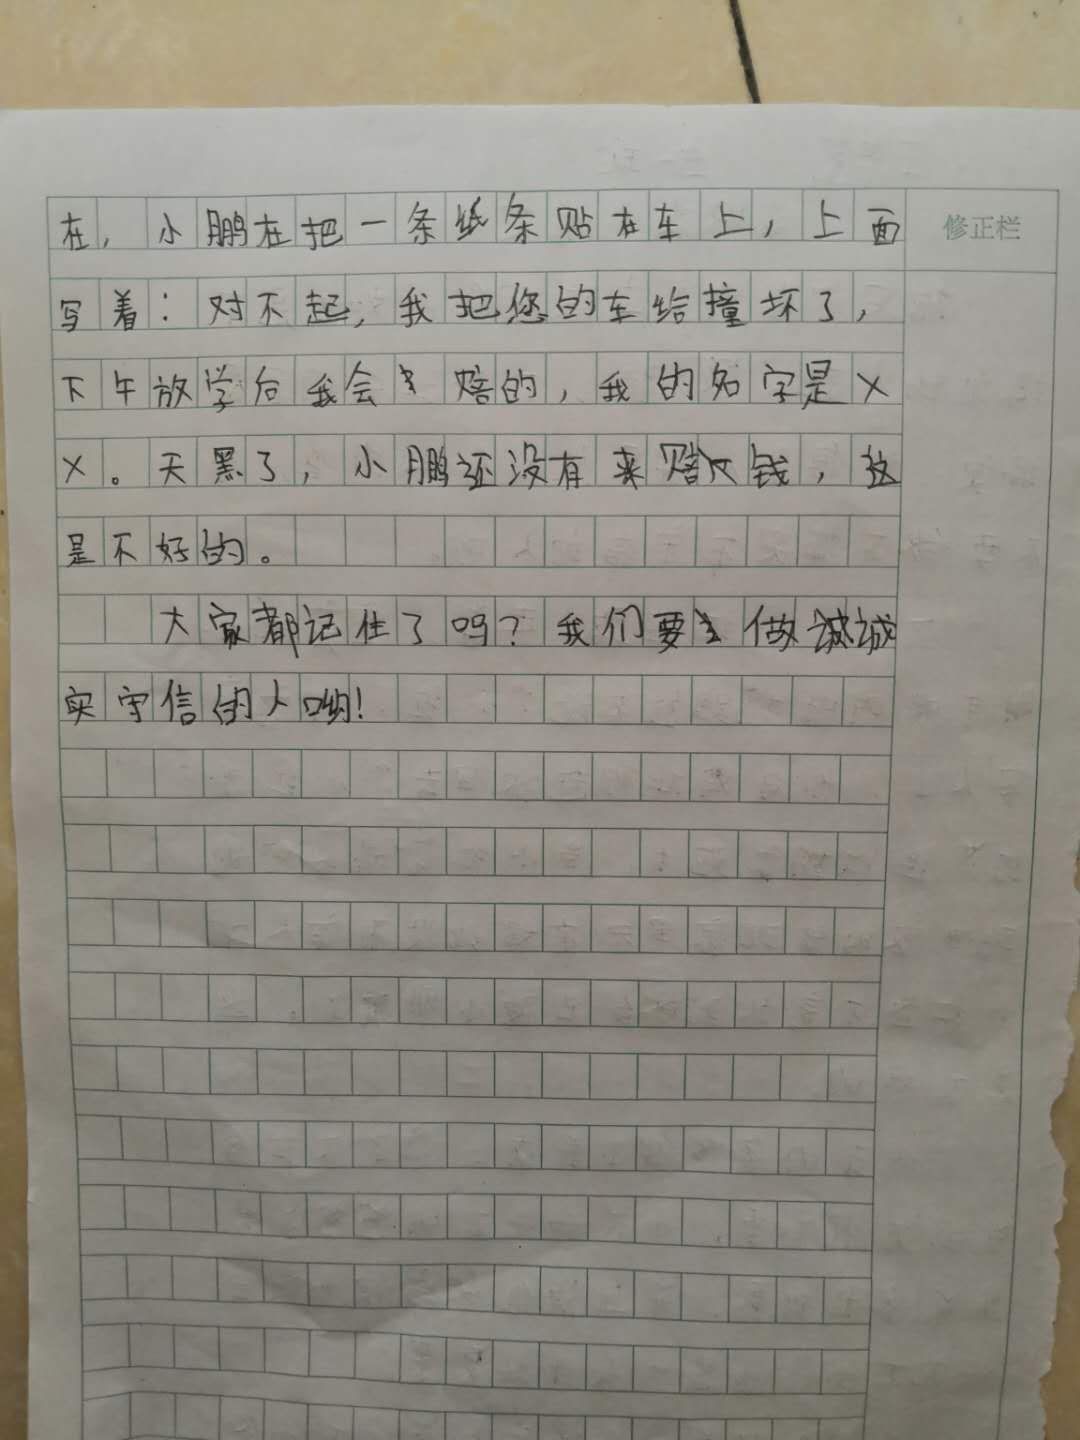 在，小鹏在把一条纸条贴在车上，上面
修正栏
写着：对不起，我把您的车给撞坏了，
下午放学后我会赔的，我的名字是X
X。天黑了，小鹏还没有来赔钱，这
是不好的。
大家都记住了吗？我们要做诚诚
实守信的人哟！